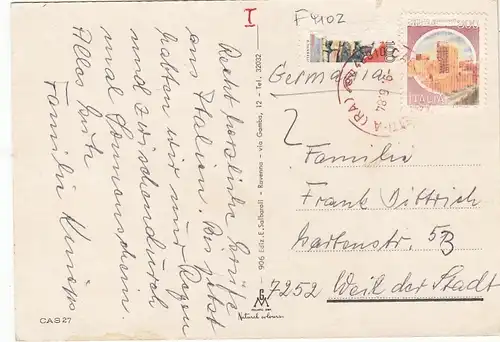 I
F 4102
Recht herzliche Grüße
aus Italien. Bis jetzt
hatten wir nur Regen
und zwischendurch
mal Sonnenschein.
Alles Gute
Familie
906 Ediz. E. Salbaroli - Ravenna - via Gamba, 12 - Tel. 32032
Germania
Familie
Frank Dittrich
Gartenstr. 53
7252 Weil der Stadt
300
ITALIA
(RA)
6.84
Natural colours
CAS 27